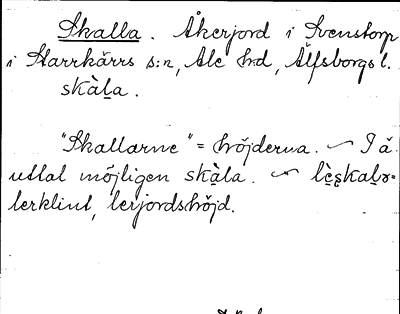 Skalla. Åkerjord i Svenstorp
i Starrkärrs s:n, Ale hd, Älfsborgs l.
skàḷa.
"Skallarne" = höjderna. ~ I ä
uttal möjligen skạ̀la. ~
lerklint, lerjordshöjd.